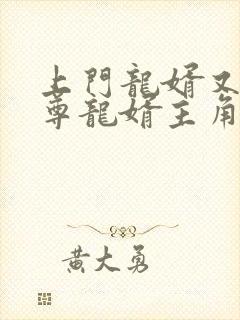 上門龍婿又
尊龍婿主角
黃大勇